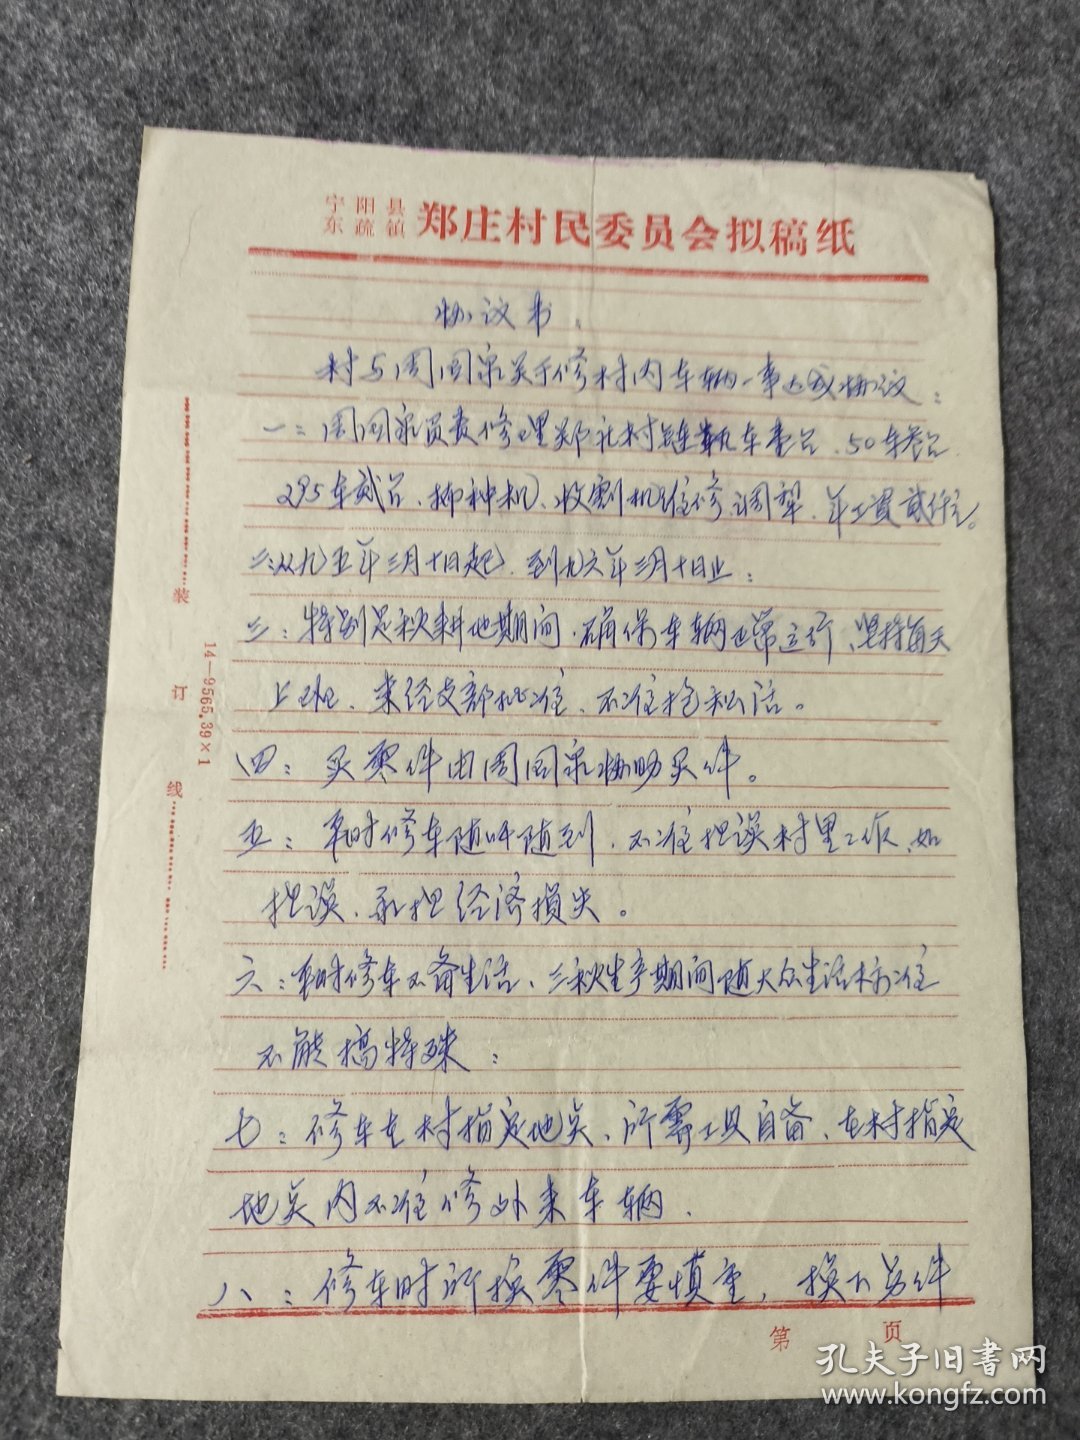 宁阳县
东疏镇
郑庄村民委员会拟稿纸
协议书
村与周围泉关于修村内车辆一事达成协议：
一：周围泉负责修理郑庄村链轨车壹台、50车叁台
295车贰台、播种机、收割机维修调犁、年工资贰仟元。
二：从九五年三月十日起、到九六年三月十日止：
三：特别是秋耕地期间、确保车辆正常运行、坚持每天
上班、未经支部批准、不准抢私活。
四：买零件由周围泉协助买件。
五：平时修车随叫随到、不准担误村里工作、如
担误、承担经济损失。
六：平时修车不备生活、三秋生产期间随大众生活标准
不能搞特殊：
七：修车在村指定地点、所需工具自备、在村指定
地点内不准修外来车辆、
八：修车时所换零件要慎重，换下另件
装
订
线
14—9565.39×1
第 页
孔夫子旧书网
www.kongfz.com